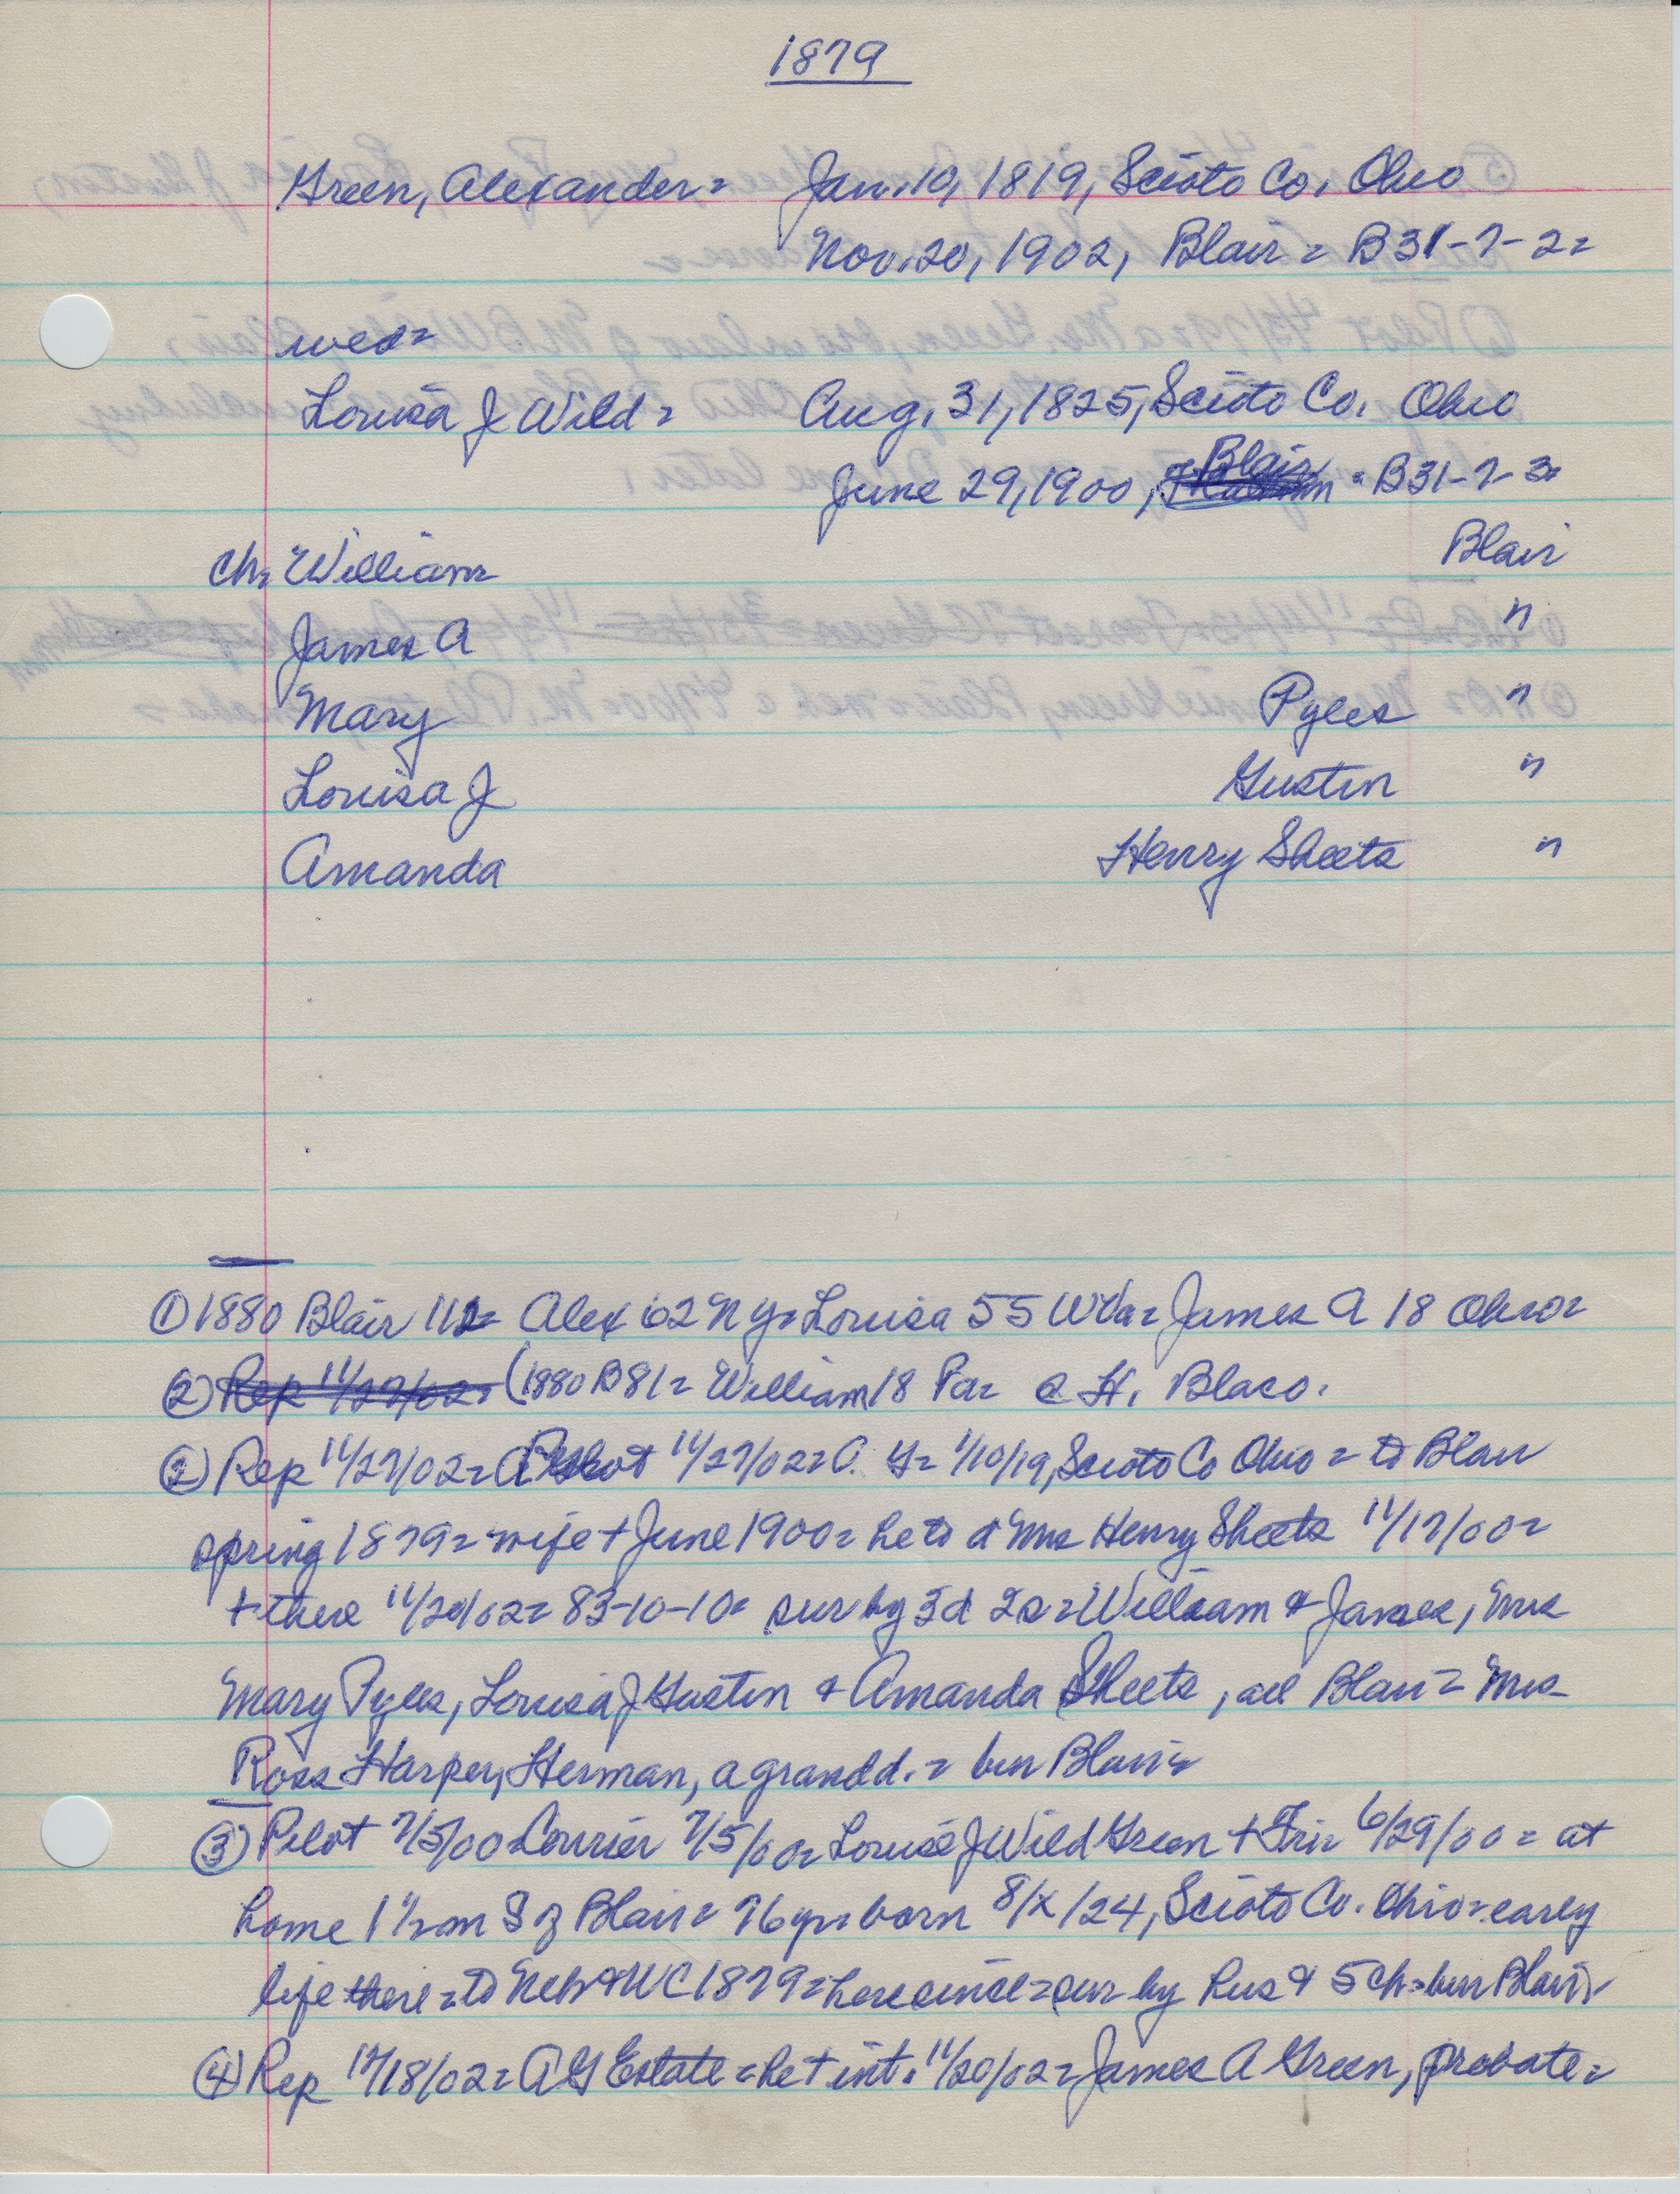 1879
Green, Alexander = Jan. 10, 1819, Scioto Co. Ohio
Nov. 20, 1902, Blair = B31-7-2 =
wed =
Louisa J Wild = Aug. 31, 1825, Scioto Co. Ohio
June 29, 1900, Blair = B31-7-3 =
Blair
ch = William "
James A "
Mary Pyles "
Louisa J Gustin "
Amanda Henry Sheets "
① 1880 Blair 112 = Alex 62 NY = Louisa 55 W Va = James A 18 Ohio =
② Rep 11/27/02 = (1880 B81 = William 18 Pa = @ H. Blaco.
② Rep 11/27/02 = Pilot 11/27/02 = A. G = 1/10/19, Scioto Co Ohio = to Blair
spring 1879 = wife + June 1900 = he to d Mrs Henry Sheets 11/17/00 =
+ there 11/20/02 = 83-10-10 = sur by 3d 2s = William & James, Mrs
Mary Pyles, Louisa J Gustin & Amanda Sheets, all Blair = Mrs
Ross Harper, Herman, a grandd. = bur Blair =
③ Pilot 7/5/00 Courier 7/5/00 = Louise J Wild Green + Fri 6/29/00 = at
home 1 1/2 m S of Blair = 76 yr = born 8/x/24, Scioto Co. Ohio = early
life there = to Neb & WC 1879 = here since = sur by hus & 5 ch = bur Blair =
④ Rep 12/18/02 = AG Estate = he + int. 11/20/02 = James A Green, probate =